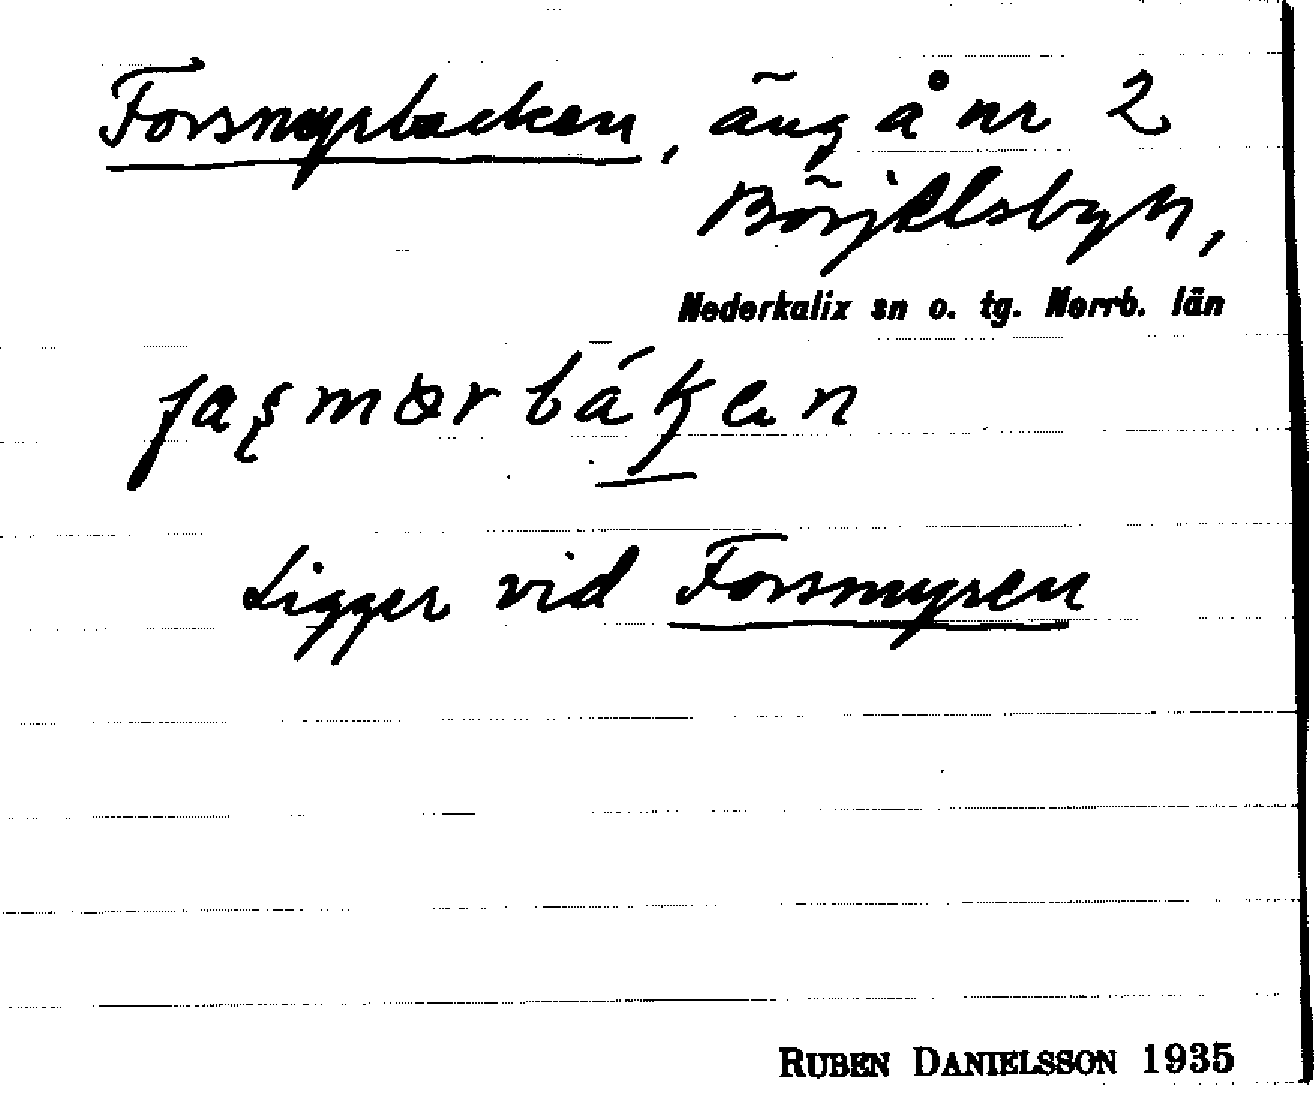 Forsmyrbacken, äng å nr 2
Börjelsbyn,
Nederkalix sn o. tg. Norrb. län
Ligger vid Forsmyren
RUBEN DANIELSSON 1935